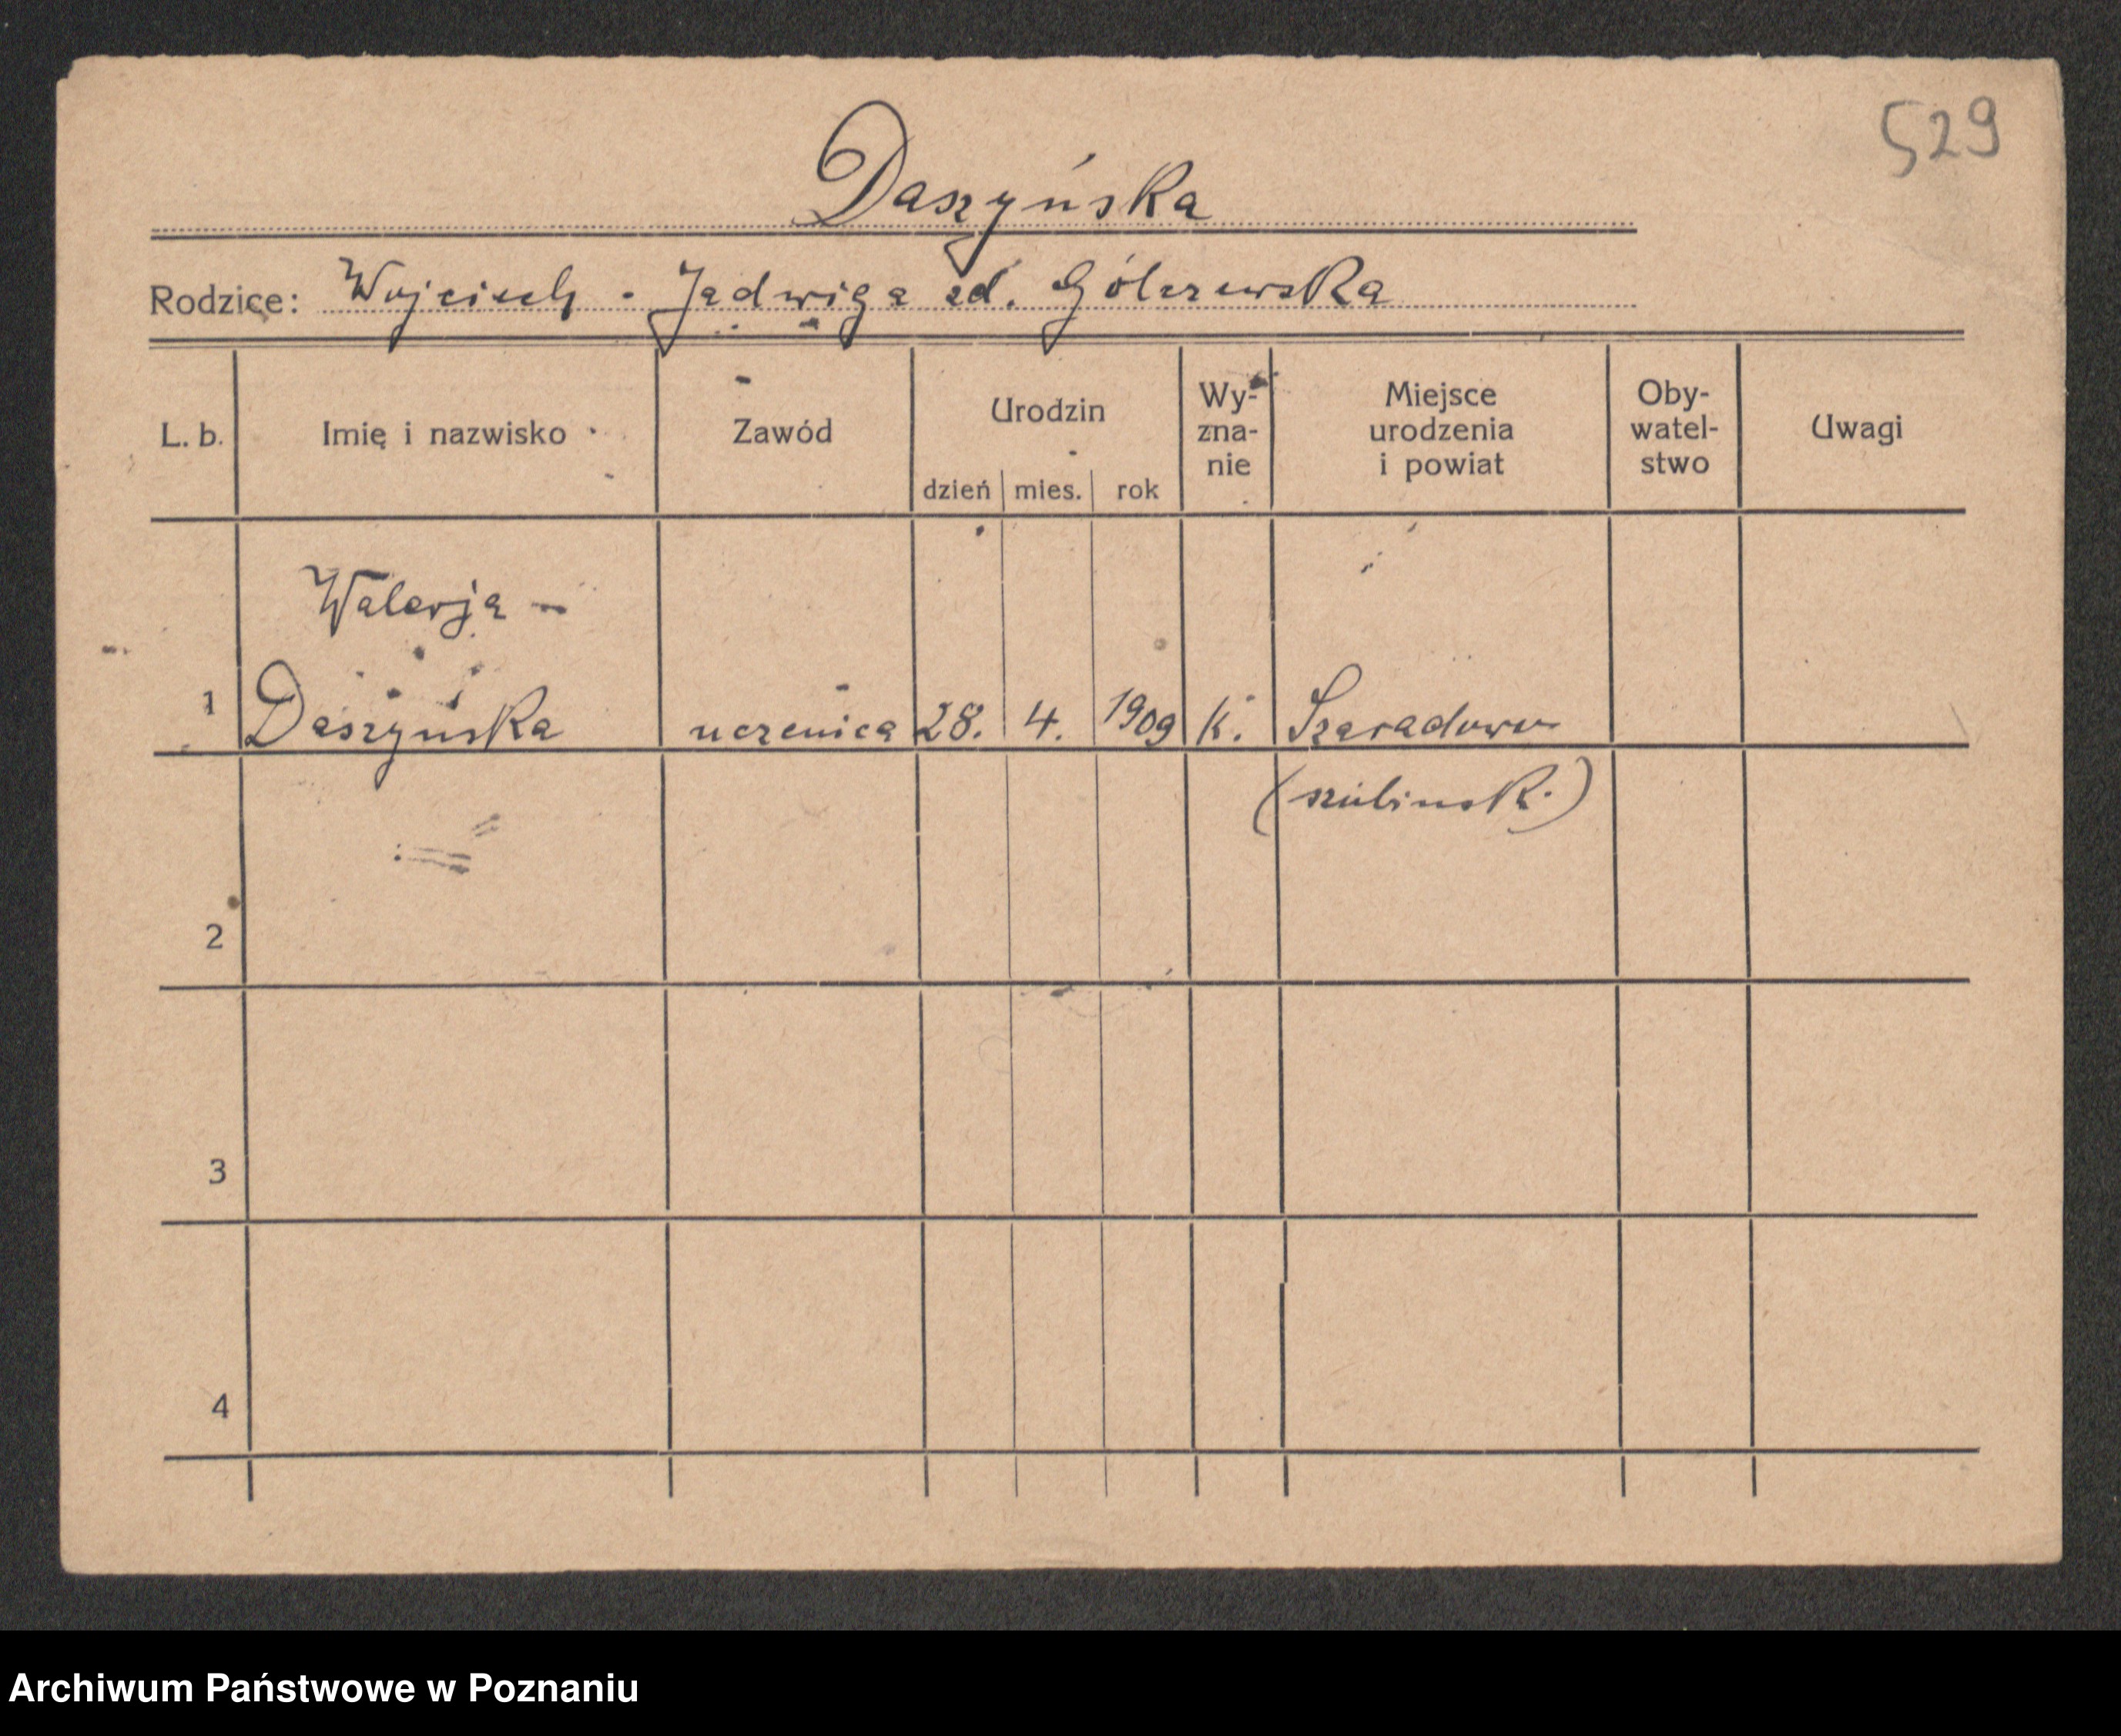 529
Daszyńska
Rodzice: Wojciech - Jadwiga zd. Gólczewska
L. b. Imię i nazwisko Zawód Urodzin dzień mies. rok Wy-zna-nie Miejsce urodzenia i powiat Oby-watel-stwo Uwagi
Walerja -
1 Daszyńska uczenica 28. 4. 1909 k. Szaradowo
(szubinsk.)
2
3
4
Archiwum Państwowe w Poznaniu